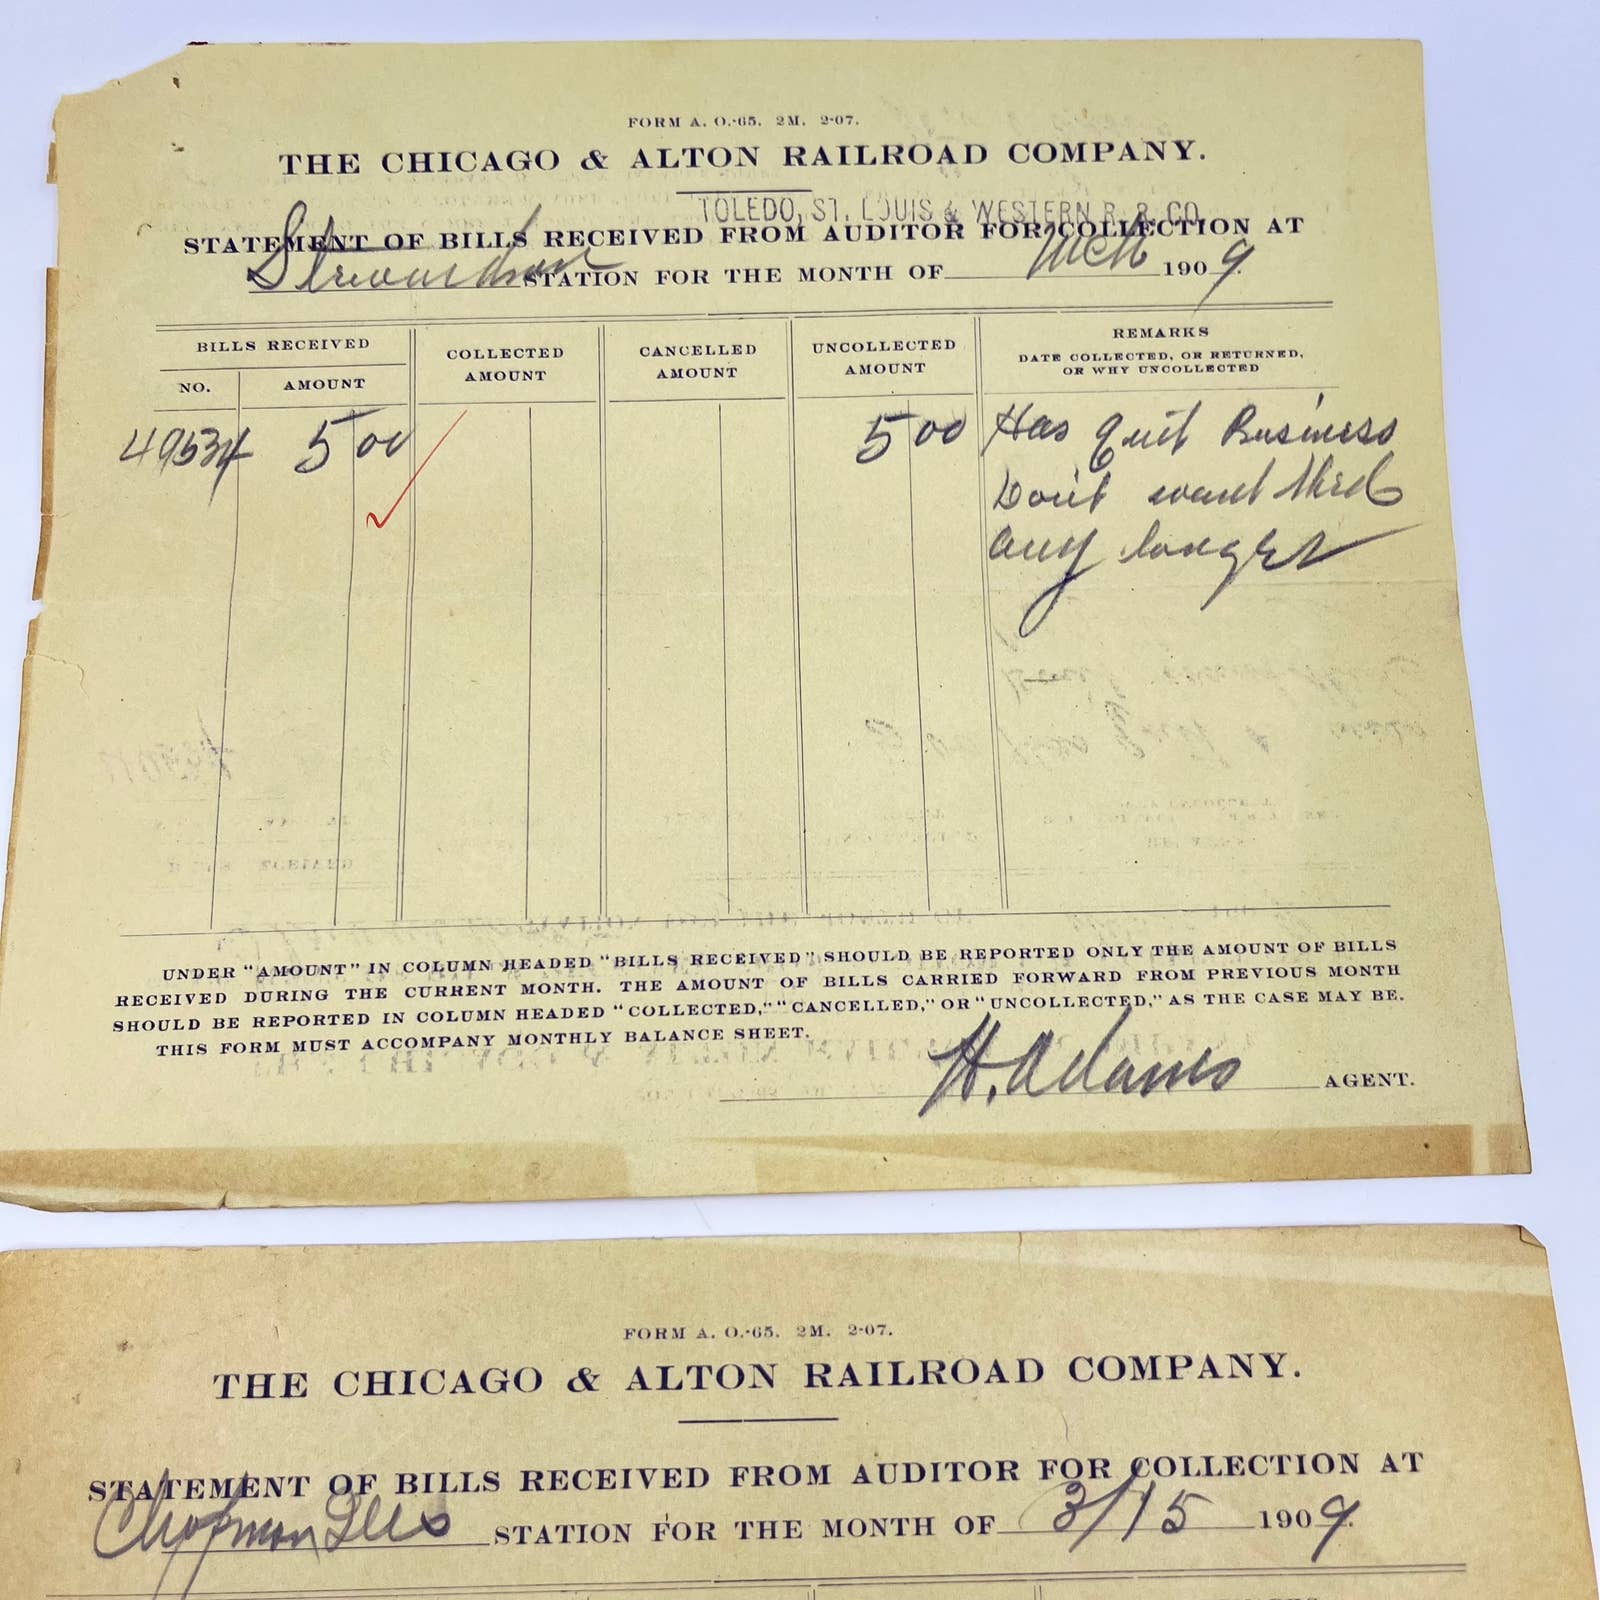 FORM A. O.-65. 2M. 2-07.
THE CHICAGO & ALTON RAILROAD COMPANY.
TOLEDO, ST. LOUIS & WESTERN R. R. CO.
STATEMENT OF BILLS RECEIVED FROM AUDITOR FOR COLLECTION AT
Strwardson STATION FOR THE MONTH OF Mch 1909.
BILLS RECEIVED
NO. AMOUNT
COLLECTED AMOUNT
CANCELLED AMOUNT
UNCOLLECTED AMOUNT
REMARKS
DATE COLLECTED, OR RETURNED,
OR WHY UNCOLLECTED
49534 5 00 5 00 Has Quit Business
Don't want
any longer
UNDER "AMOUNT" IN COLUMN HEADED "BILLS RECEIVED" SHOULD BE REPORTED ONLY THE AMOUNT OF BILLS
RECEIVED DURING THE CURRENT MONTH. THE AMOUNT OF BILLS CARRIED FORWARD FROM PREVIOUS MONTH
SHOULD BE REPORTED IN COLUMN HEADED "COLLECTED," "CANCELLED," OR "UNCOLLECTED," AS THE CASE MAY BE.
THIS FORM MUST ACCOMPANY MONTHLY BALANCE SHEET.
H. Adams AGENT.
FORM A. O.-65. 2M. 2-07.
THE CHICAGO & ALTON RAILROAD COMPANY.
STATEMENT OF BILLS RECEIVED FROM AUDITOR FOR COLLECTION AT
Chapman Ills STATION FOR THE MONTH OF 3/15 1909.